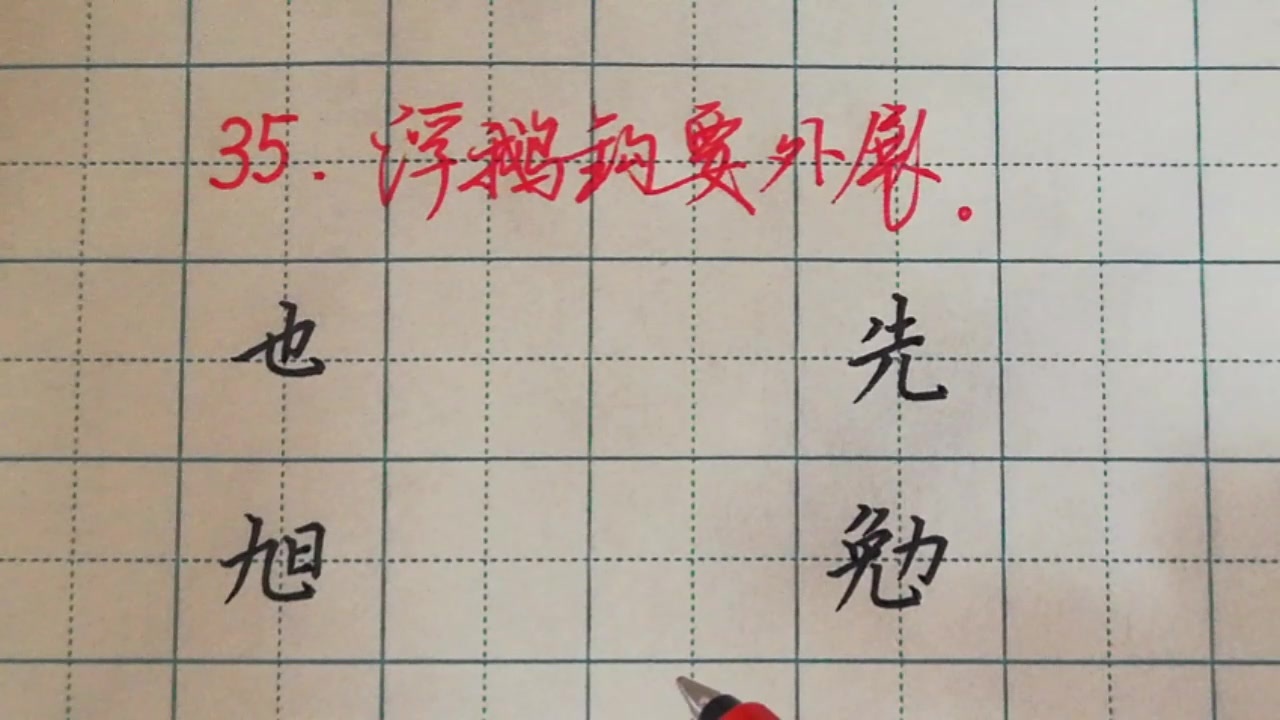 35.浮鹅钩要外展.
也 先
旭 勉